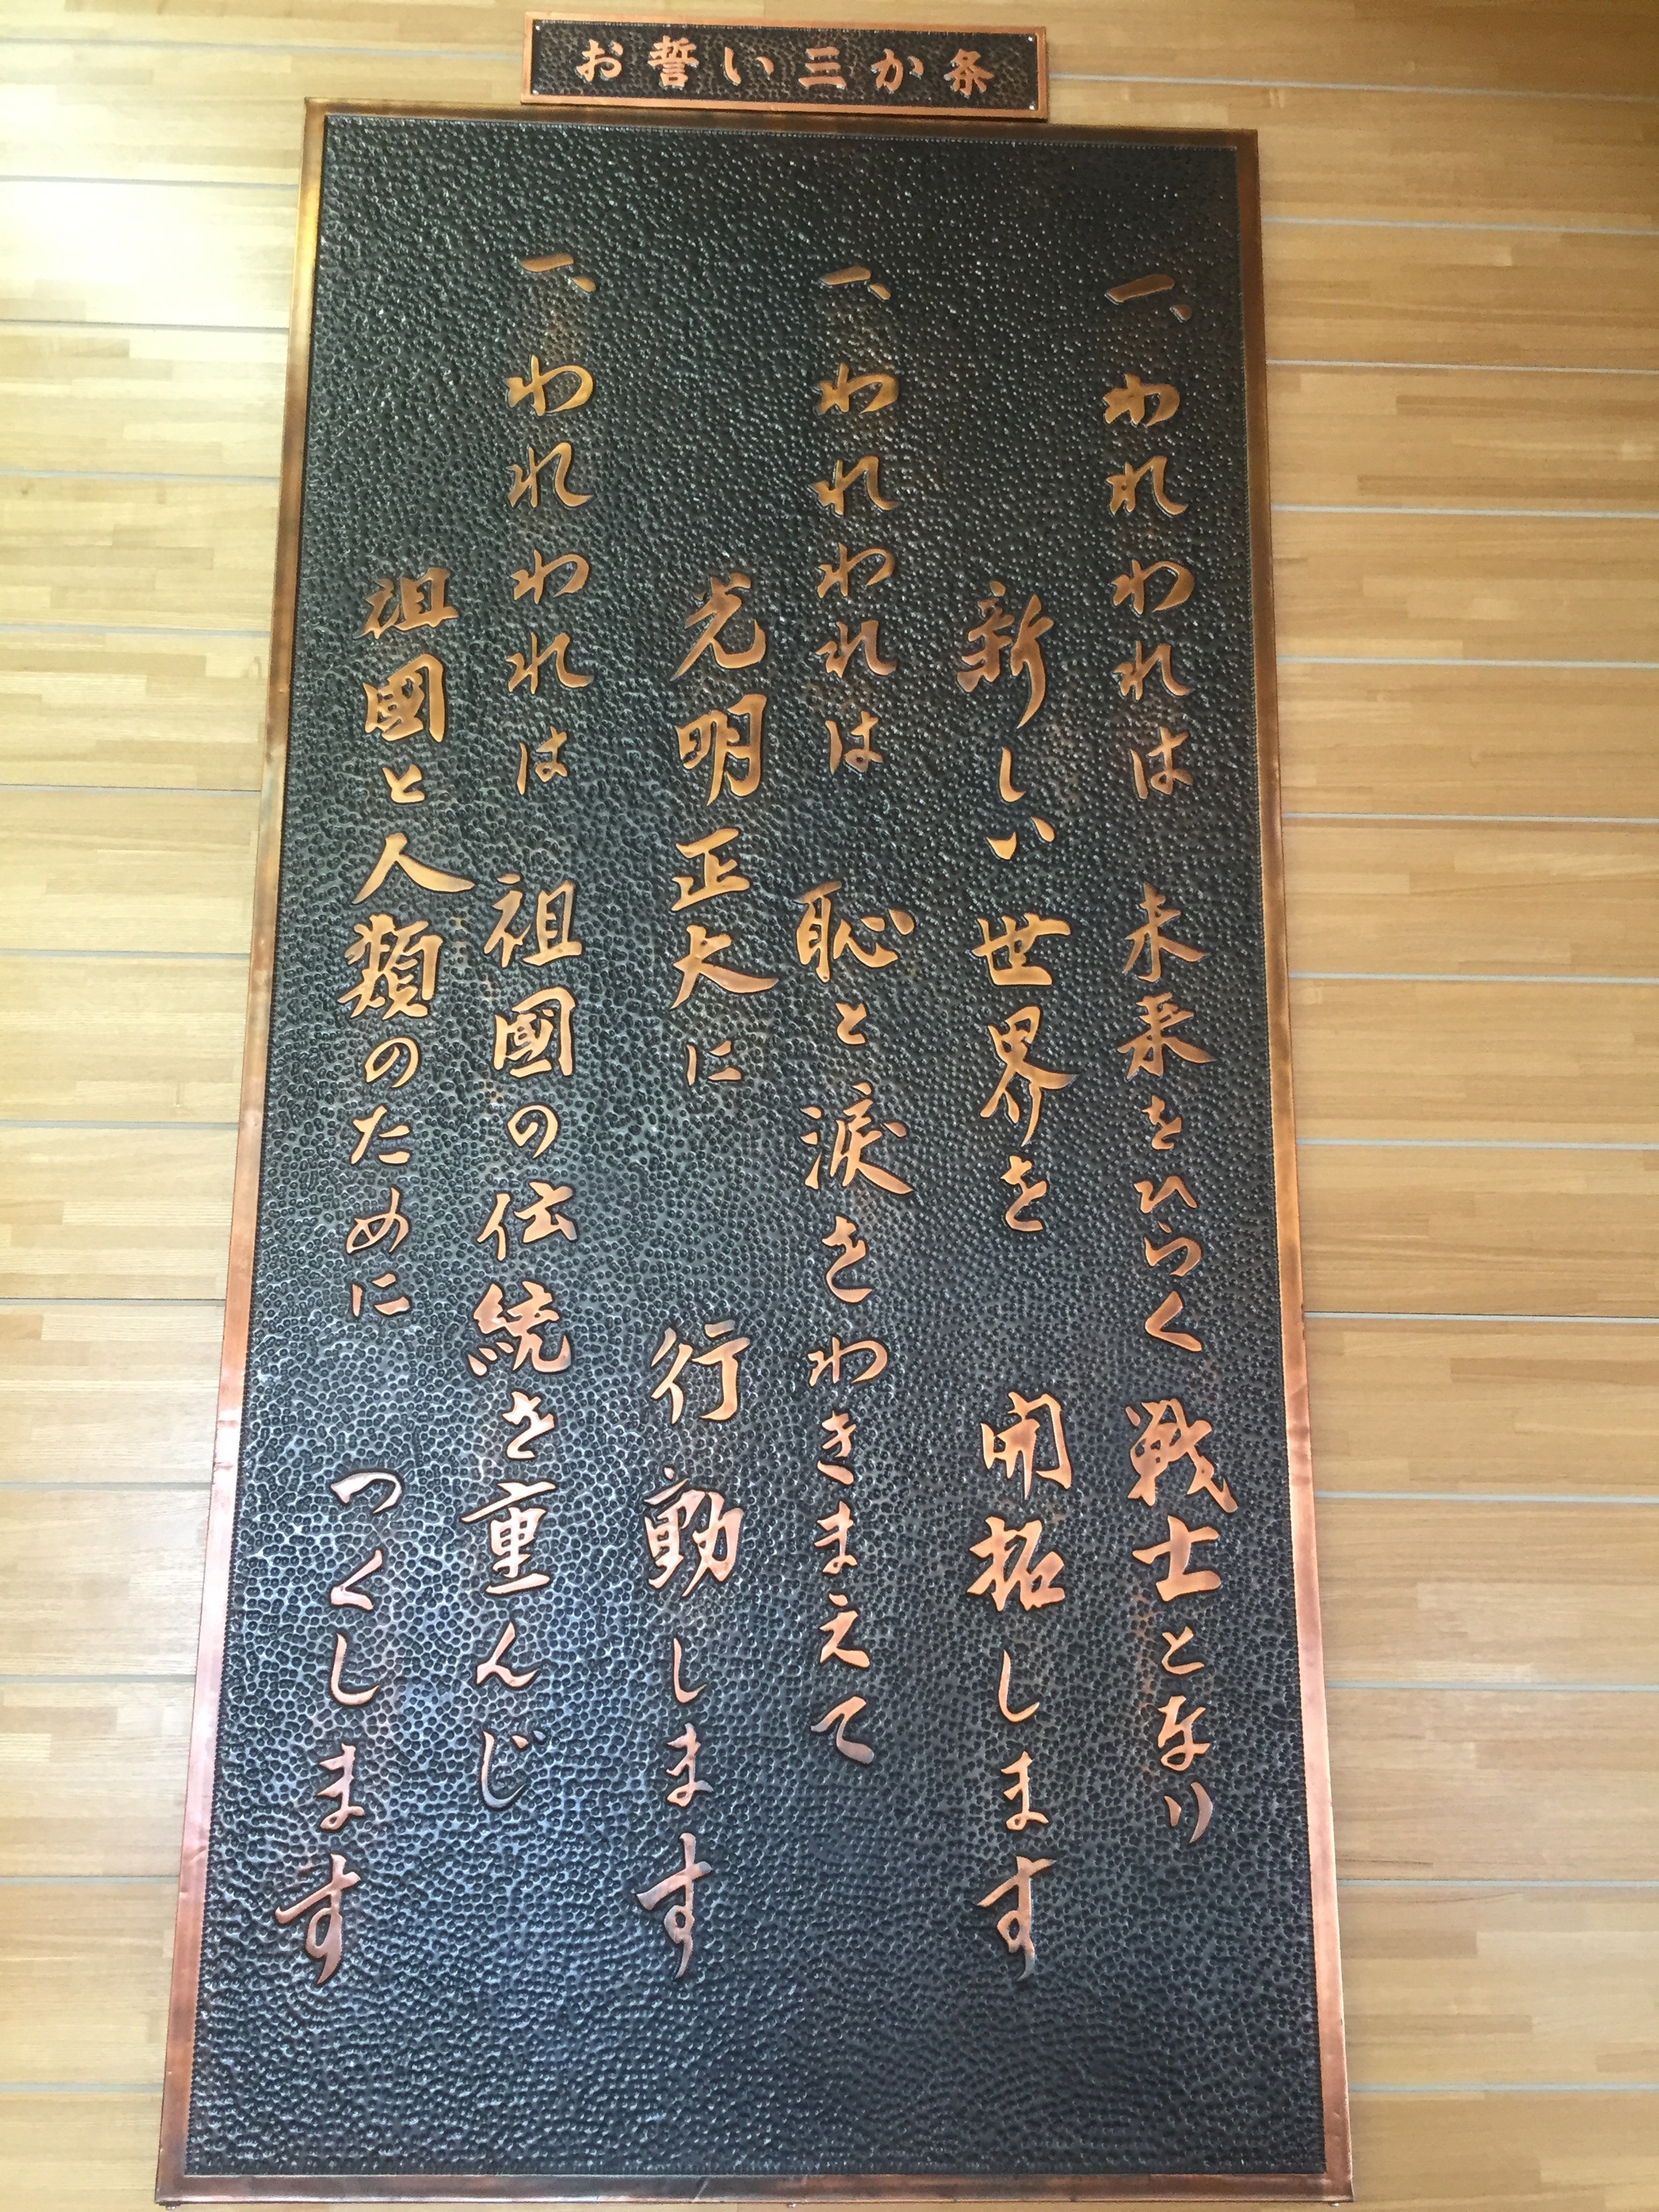 お誓い三か条
一、われわれは 未来をひらく 戦士となり
新しい世界を 開拓します
一、われわれは 恥と涙をわきまえて
光明正大に 行動します
一、われわれは 祖國の伝統を重んじ
祖國と人類のために つくします